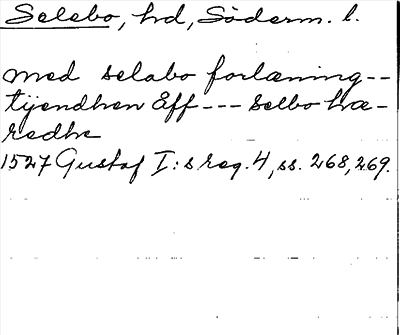 Selebo, hd, Söderm. l.
med selabo forlæning--
tijendhen Aff --- Selbo hæ-
redhe
1527 Gustaf I:s reg. 4, ss. 268, 269.